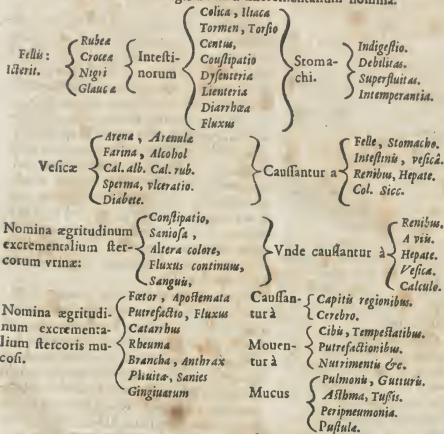 Fellis:
Icterit.
Rubea
Crocea
Nigri
Glauca
Intesti-
norum
Colica, Iliaca
Tormen, Torsio
Centus,
Constipatio
Dysenteria
Lienteria
Diarrhœa
Fluxus
Stoma-
chi.
Indigestio.
Debilitas.
Superfluitas.
Intemperantia.
Vesicæ
Arena, Arenulæ
Farina, Alcohol
Cal. alb. Cal. rub.
Sperma, vlceratio.
Diabete.
Caussantur a
Felle, Stomacho.
Intestinis, vesicâ.
Renibus, Hepate.
Col. Sicc.
Nomina ægritudinum
excrementalium ster-
corum vrinæ:
Constipatio,
Saniosa,
Altera colore,
Fluxus continuus,
Sanguis,
Vnde caussantur à
Renibus.
A viis.
Hepate.
Vesica.
Calculo.
Nomina ægritudi-
num excrementa-
lium stercoris mu-
cosi.
Fœtor, Apostemata
Putrefactio, Fluxus
Catarrhus
Rheuma
Brancha, Anthrax
Phuita, Sanies
Gingiuarum
Caussan-
tur à
Capitis regionibus.
Cerebro.
Mouen-
tur à
Cibis, Tempestatibus.
Putrefactionibus.
Nutrimentis &c.
Mucus
Pulmonis, Gutturis.
Asthma, Tussis.
Peripneumonia.
Pustula.